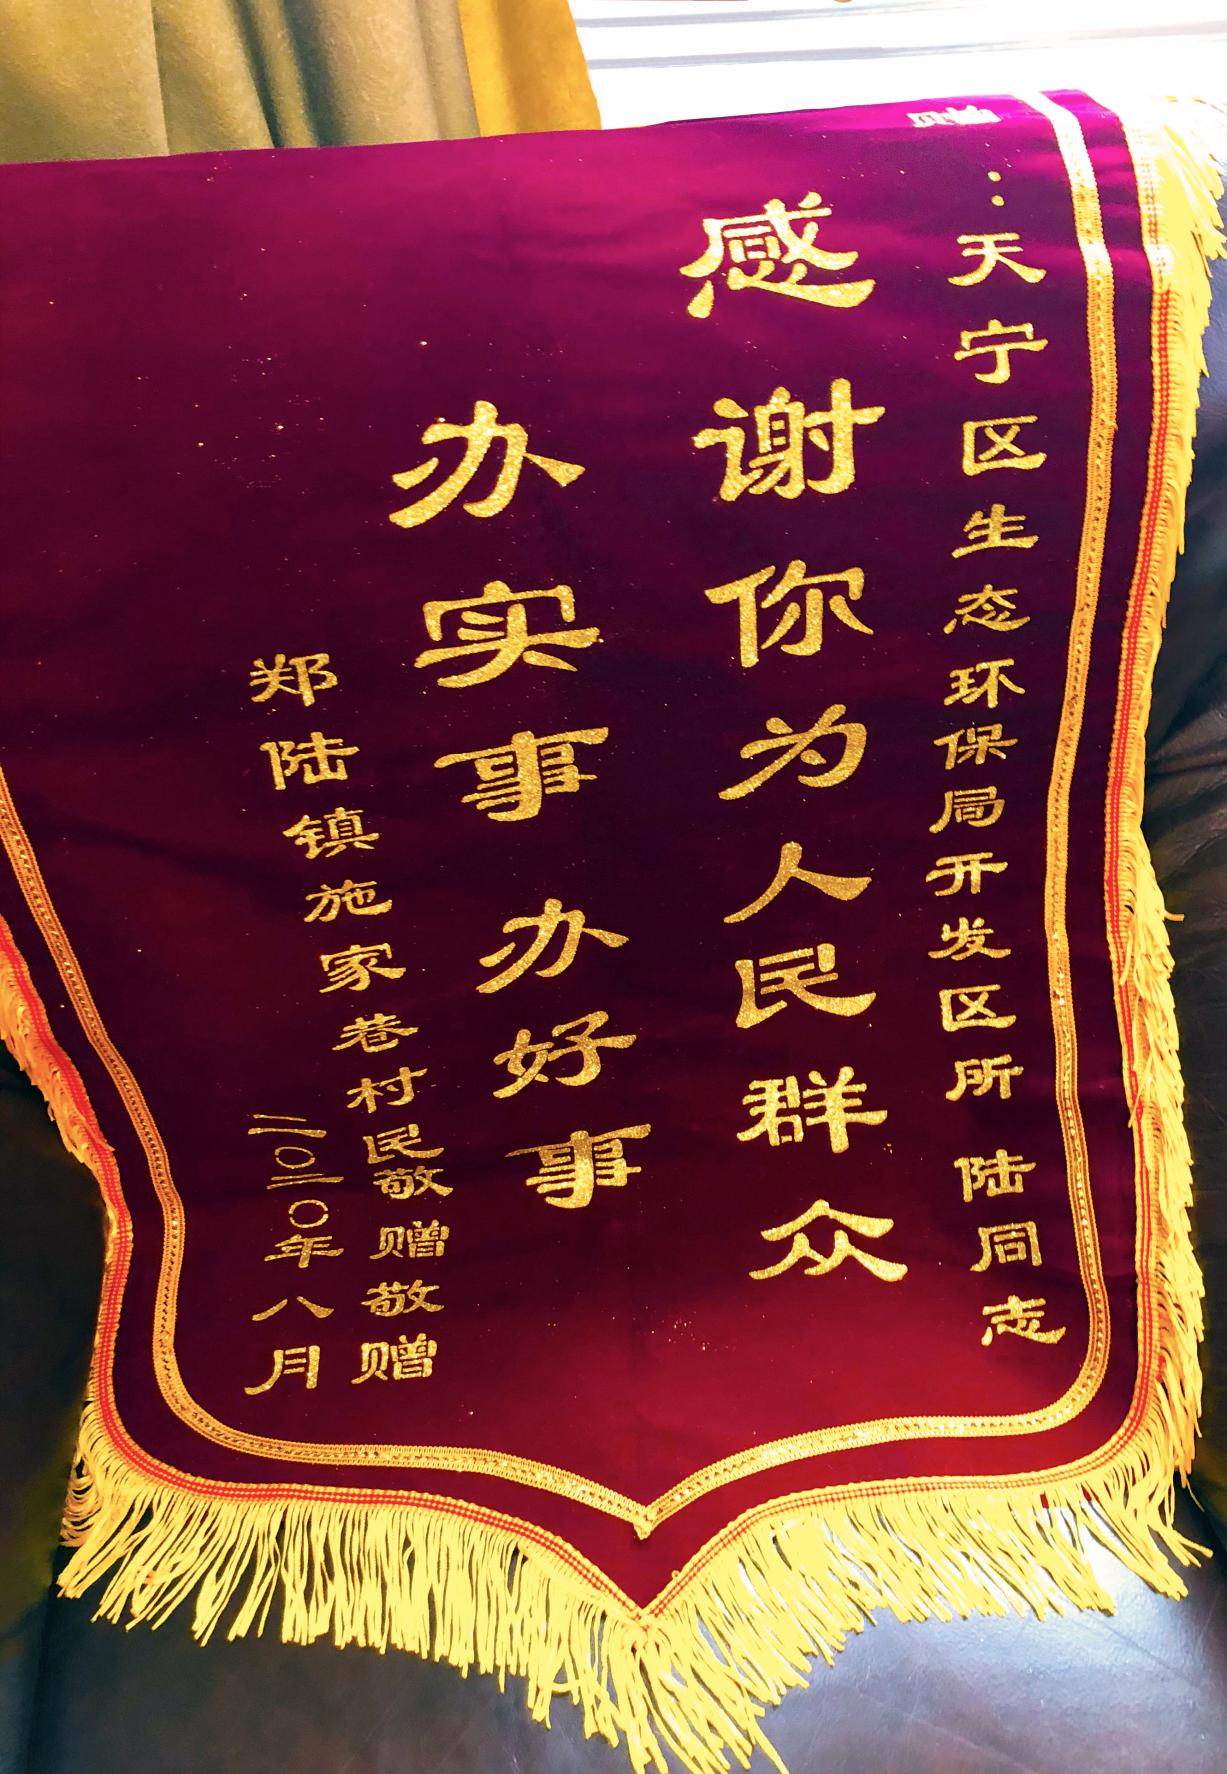 ：天宁区生态环保局开发区所 陆同志
感谢你为人民群众
办实事办好事
郑陆镇施家巷村民敬赠敬赠
二〇二〇年八月